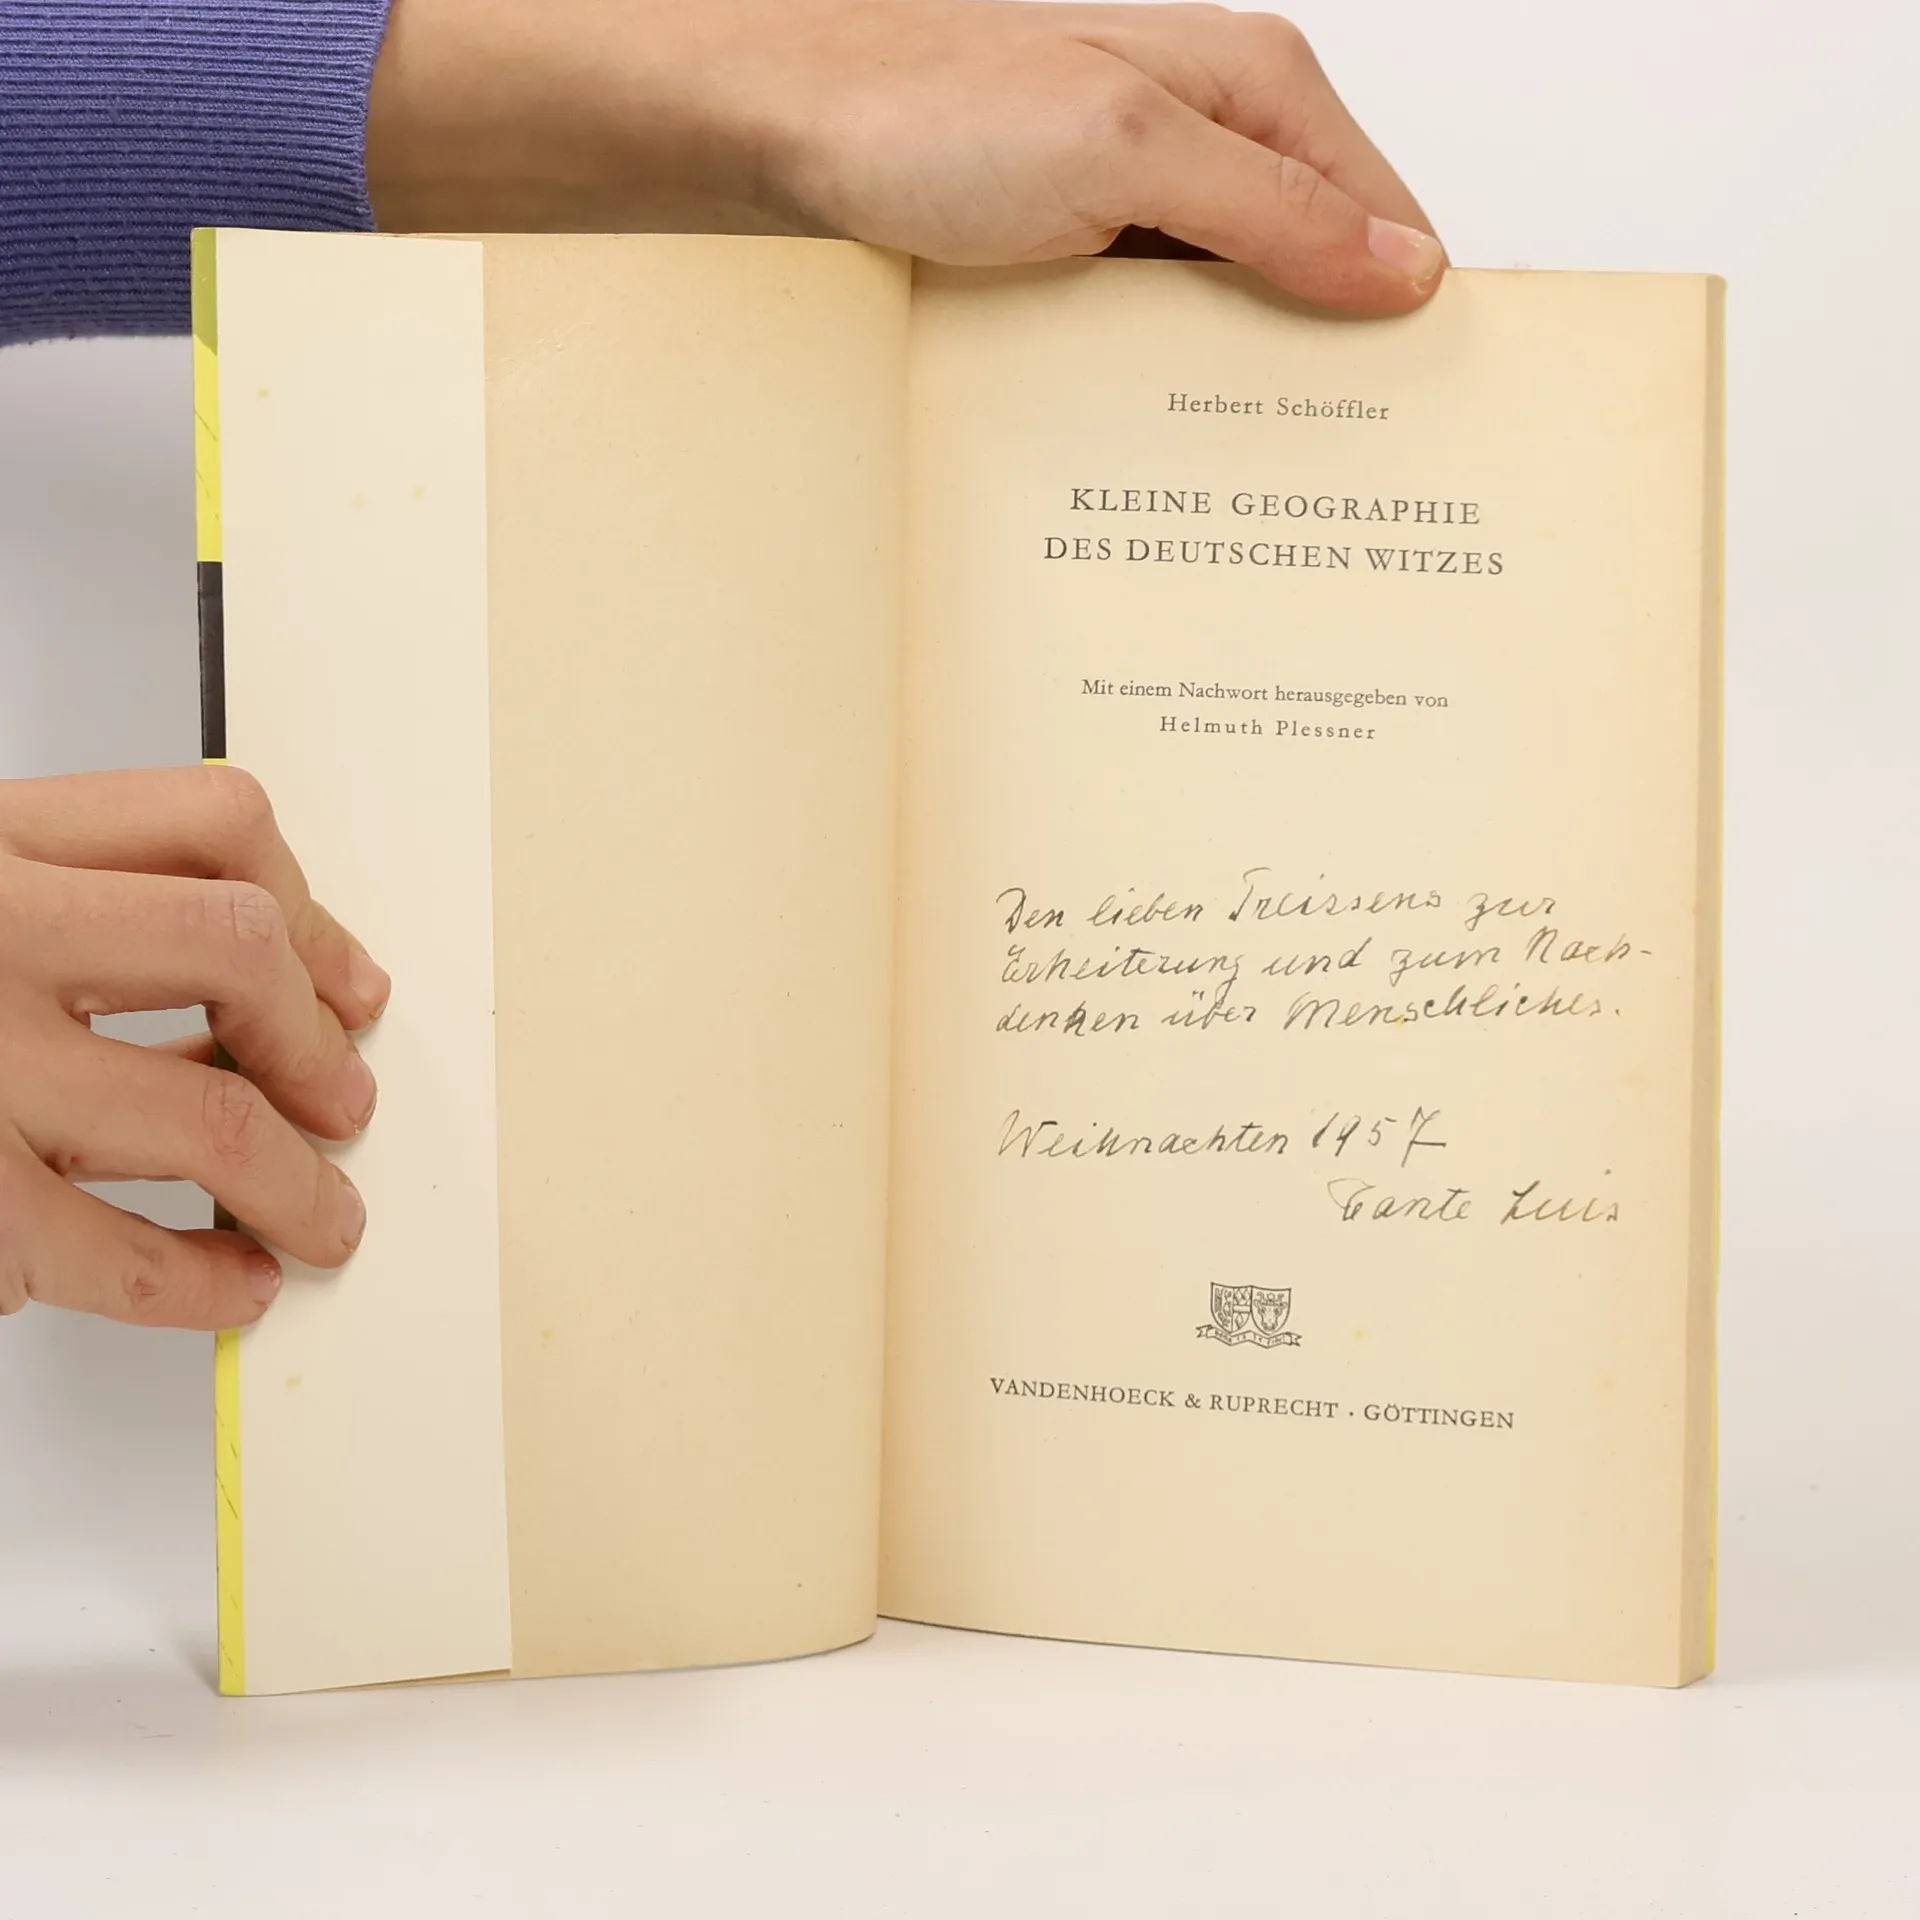 Herbert Schöffler
KLEINE GEOGRAPHIE
DES DEUTSCHEN WITZES
Mit einem Nachwort herausgegeben von
Helmuth Plessner
Den lieben Treissens zur
Erheiterung und zum Nach-
denken über Menschliches.
Weihnachten 1957
Tante Luis
VANDENHOECK & RUPRECHT · GÖTTINGEN